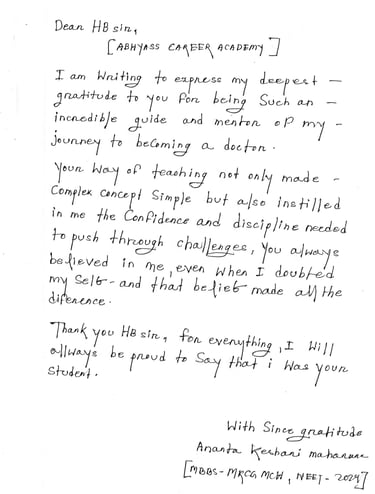 Dear HB sir,
[ABHYASS CAREER ACADEMY]
I am writing to express my deepest -
gratitude to you for being Such an -
incredible guide and mentor of my -
journey to becoming a doctor.
Your way of teaching not only made -
Complex concept Simple but also instilled
in me the Confidence and discipline needed
to push through challenges, You always
believed in me, even when I doubted
my Self - and that belief made all the
diference.
Thank you HB sir, for everything, I will
allways be proud to Say that i was your
Student.
With Since gratitude
Ananta Keshari
[MBBS- MKCG MCH, NEET - 2024]